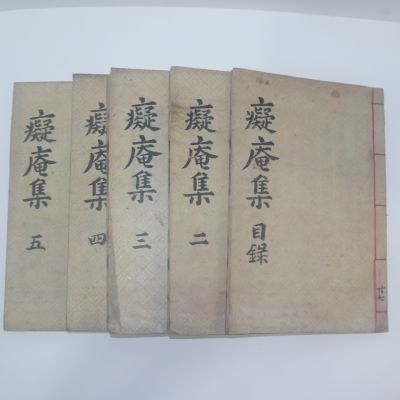 癡庵集 目錄
癡庵集 二
癡庵集 三
癡庵集 四
癡庵集 五